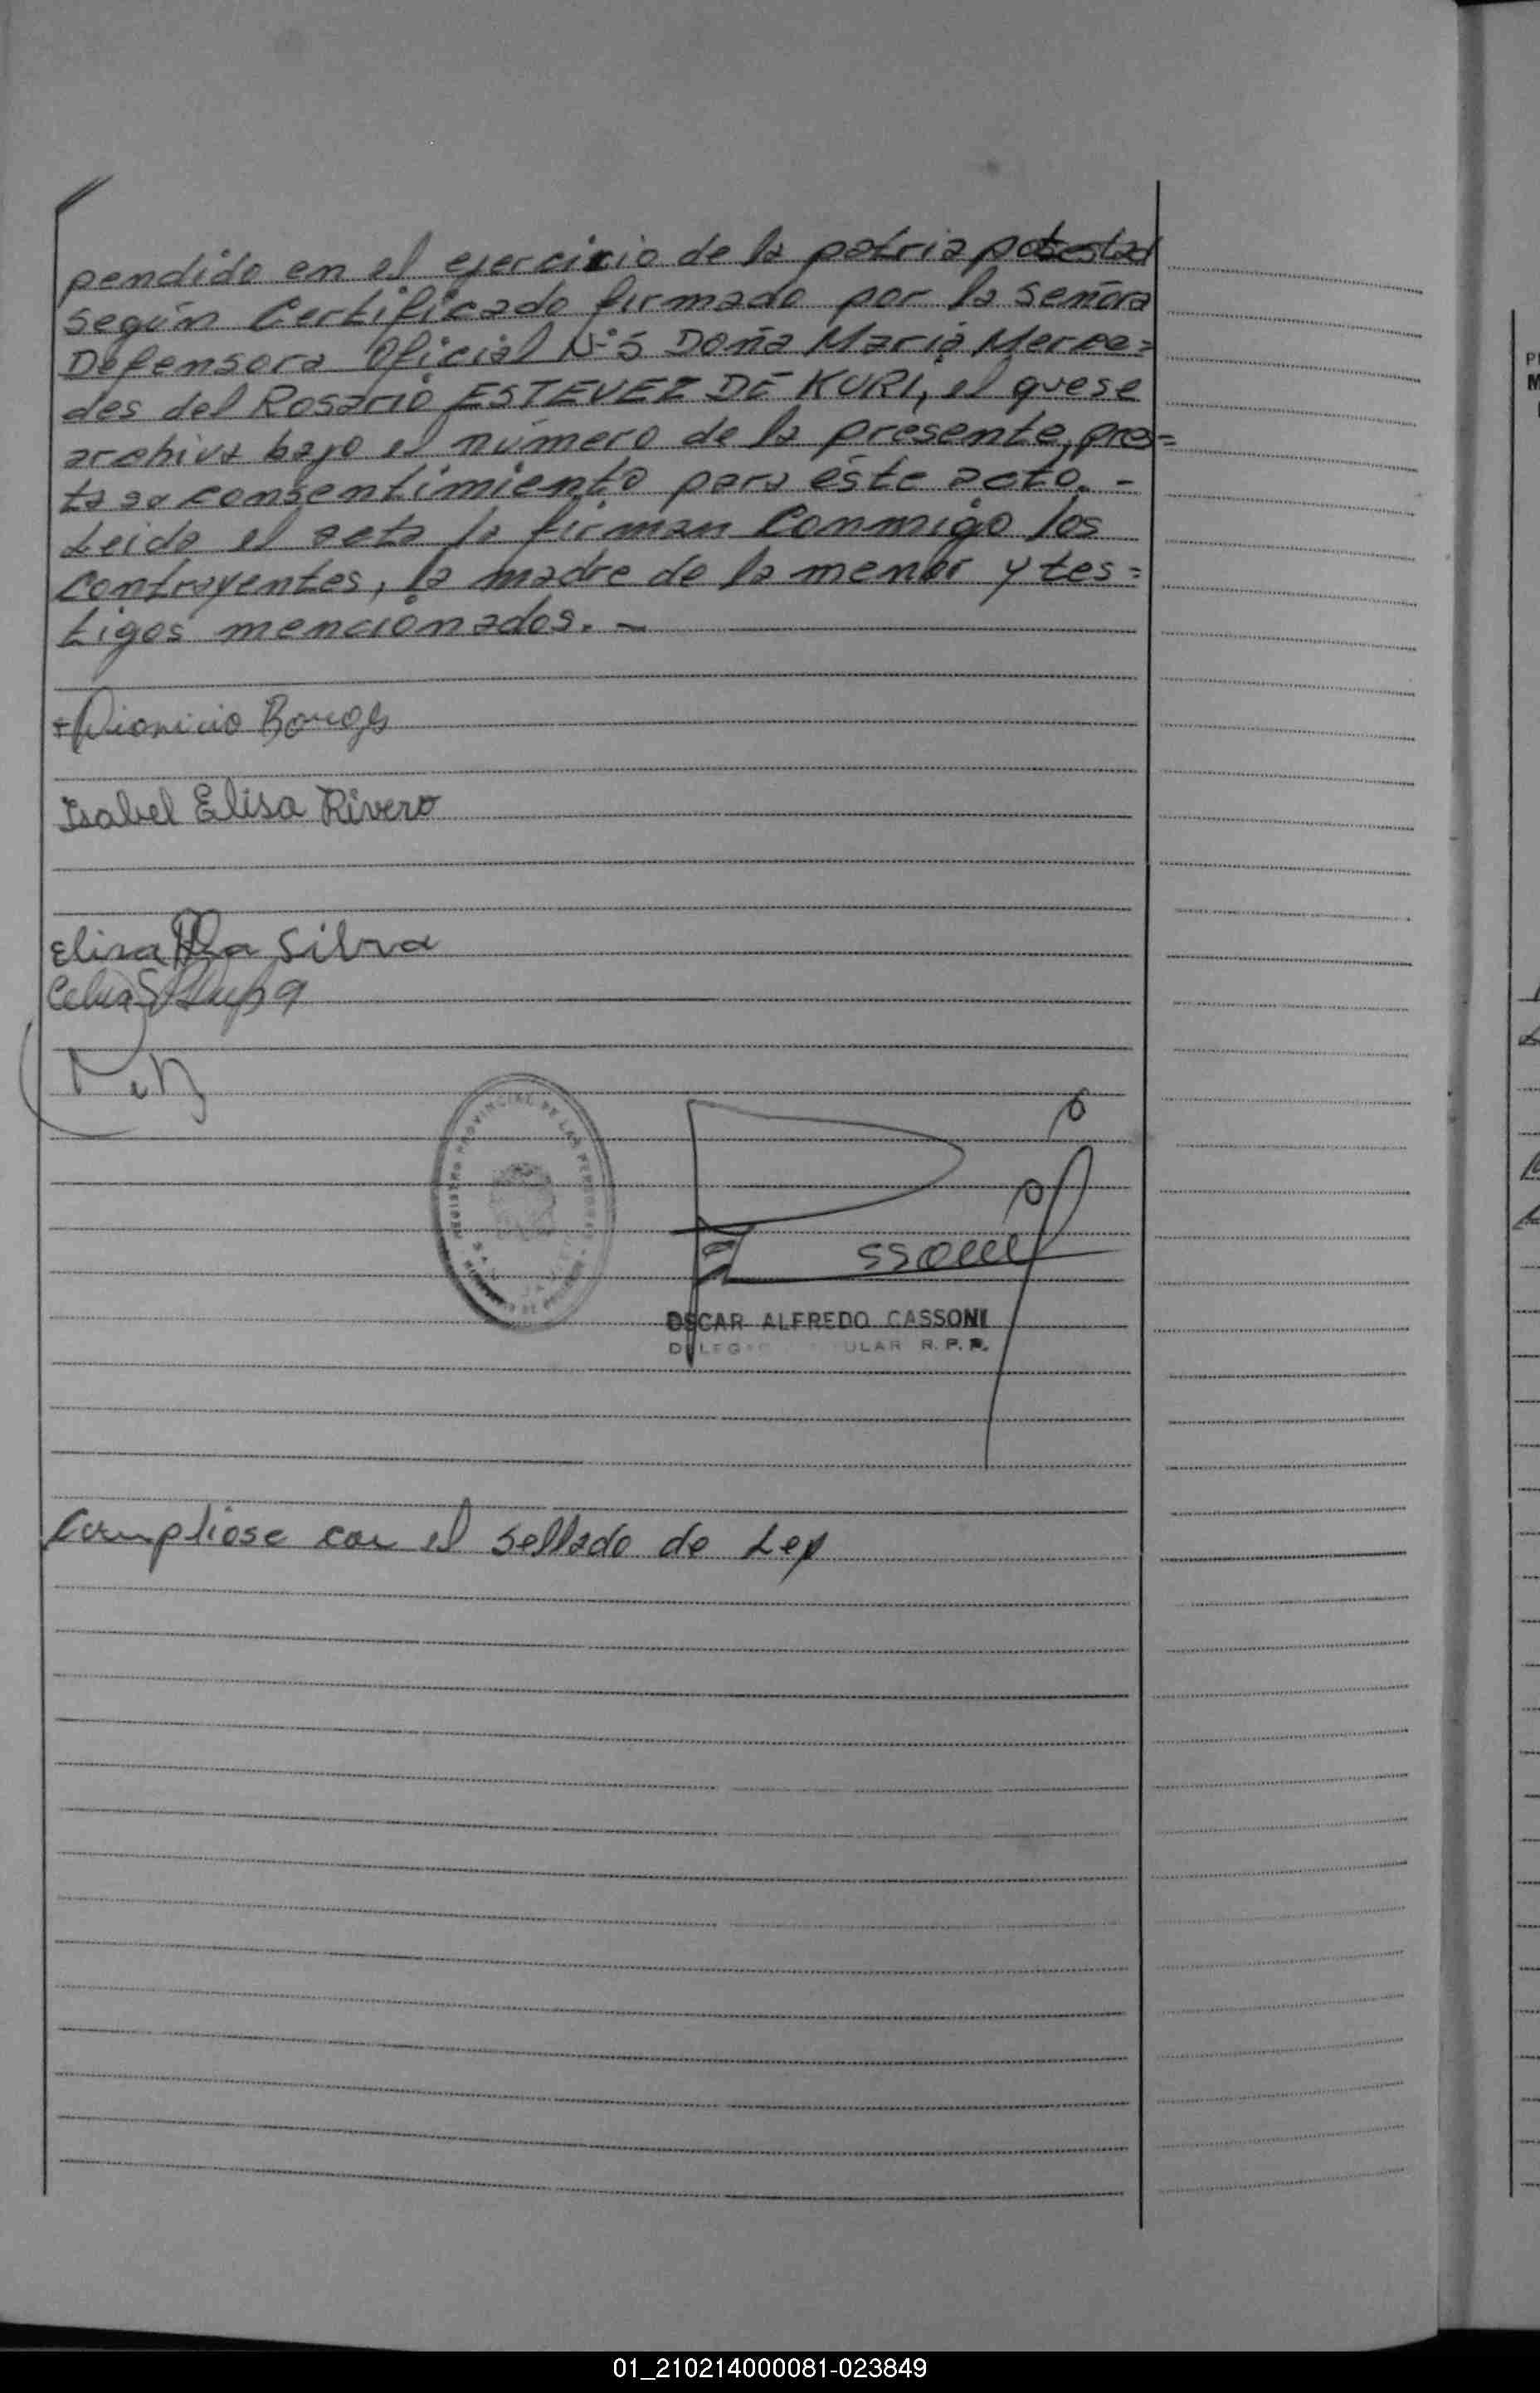 pendido en el ejercicio de la patria potestad
según Certificado firmado por la señora
Defensora Oficial Nº5 Doña María Merce=
des del Rosario ESTEVEZ DE KURI, el que se
archiva bajo el número de la presente, pres=
ta su consentimiento para éste acto. -
Leida el acta la firman conmigo los
contrayentes, la madre de la menor y tes=
tigos mencionados. -
Dionicio Borges
Isabel Elisa Rivero
Elisa Da Silva
Celia
REGISTRO PROVINCIAL DE LAS PERSONAS
OSCAR ALFREDO CASSONI
R. P. P.
Cumpliose con el sellado de Ley
01_210214000081-023849